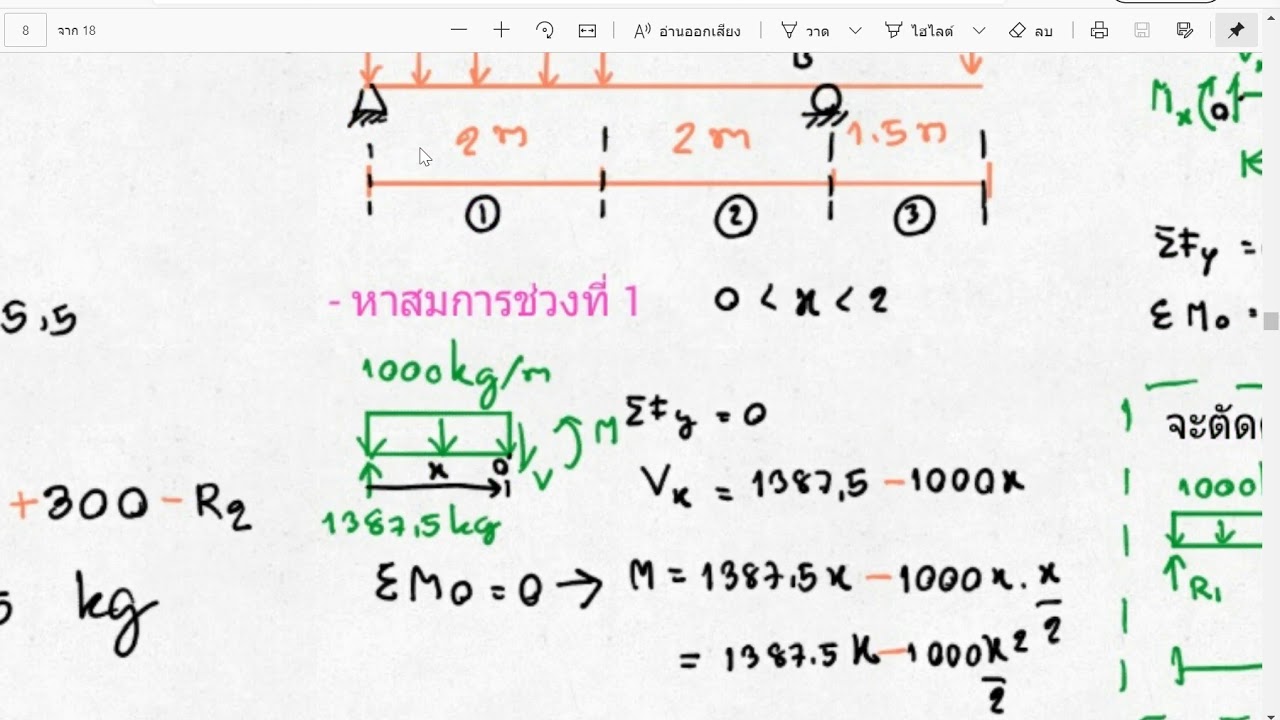 8 จาก 18 อ่านออกเสียง วาด ไฮไลต์ ลบ
B
2 m 2 m 1.5 m
① ② ③
- หาสมการช่วงที่ 1 0 < x < 2
1000 kg/m
x 0 V M
1387,5 kg
ΣFy = 0
Vx = 1387,5 - 1000x
ΣM0 = 0 → M = 1387,5x - 1000x . x/2
= 1387.5x - 1000x²/2
5,5
+300 - R2
kg
Mx 0
ΣFy =
ΣM0 =
จะตัด
1000
R1